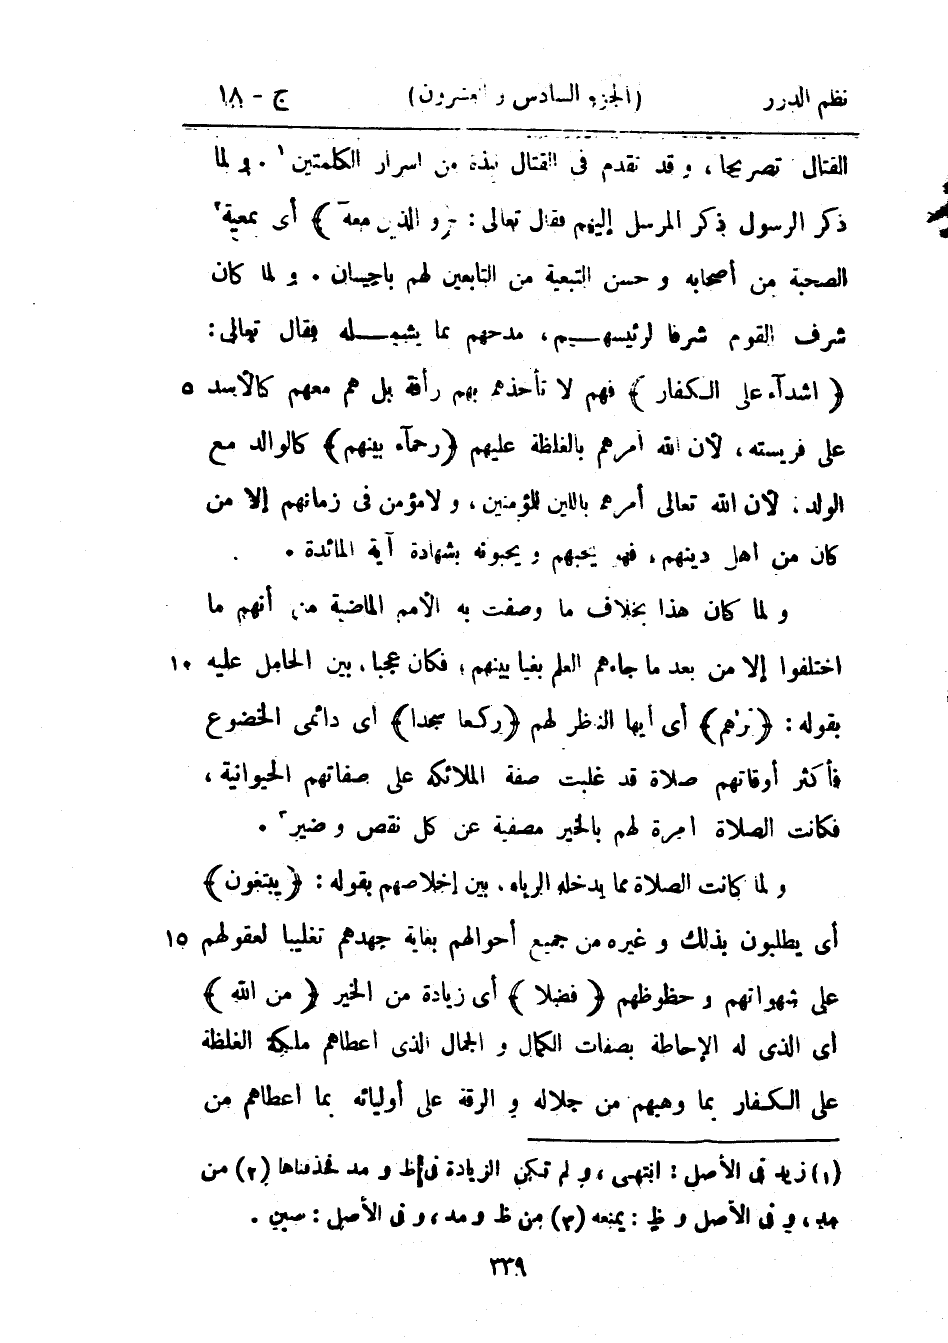 نظم الدرر (الجزء السادس و العشرون) ج - ١٨
القتال تصريحا، و قد تقدم فى القتال نبذة من اسرار الكلمتين ١ . و لما
ذكر الرسول ذكر المرسل إليهم فقال تعالى : ﴿و الذين معه﴾ أى بمعية ٢
الصحبة من أصحابه و حسن التبعية من التابعين لهم باحسان . و لما كان
شرف القوم شرفا لرئيسهم، مدحهم بما يشمله فقال تعالى :
﴿ اشدآء على الكفار ﴾ فهم لا تأخذهم بهم رأفة بل هم معهم كالأسد ٥
على فريسته، لأن الله أمرهم بالغلظة عليهم ﴿رحمآء بينهم﴾ كالوالد مع
الولد، لأن الله تعالى أمرهم باللين للؤمنين، و لامؤمن فى زمانهم إلا من
كان من أهل دينهم، فهو يحبهم و يحبونه بشهادة آية المائدة .
و لما كان هذا بخلاف ما وصفت به الأمم الماضية من أنهم ما
اختلفوا إلا من بعد ما جاءهم العلم بغيا بينهم، فكان عجبا، بين الحامل عليه ١٠
بقوله : ﴿ ترٰهم﴾ أى أيها الناظر لهم ﴿ركعا سجدا﴾ اى دائمى الخضوع
فأكثر أوقاتهم صلاة قد غلبت صفة الملائكة على صفاتهم الحيوانية ،
فكانت الصلاة آمرة لهم بالخير مصفية عن كل نقص و ضير ٣ .
و لما كانت الصلاة مما يدخله الرياء، بين إخلاصهم بقوله : ﴿ يبتغون﴾
أى يطلبون بذلك و غيره من جميع أحوالهم بغاية جهدهم تغليبا لعقولهم ١٥
على شهواتهم و حظوظهم ﴿ فضلا ﴾ أى زيادة من الخير ﴿ من الله ﴾
أى الذى له الإحاطة بصفات الكمال و الجمال الذى اعطاهم ملكة الغلظة
على الكفار بما وهبهم من جلاله و الرقة على أوليائه بما أعطاهم من
(١) زيد فى الأصل : انتهى ، و لم تكن الزيادة فى ظ و مد فحذفناها (٢) من
مد، و فى الأصل و ظ : يمنعه (٣) من ظ و مد، و فى الأصل : سين .
٣٣٩